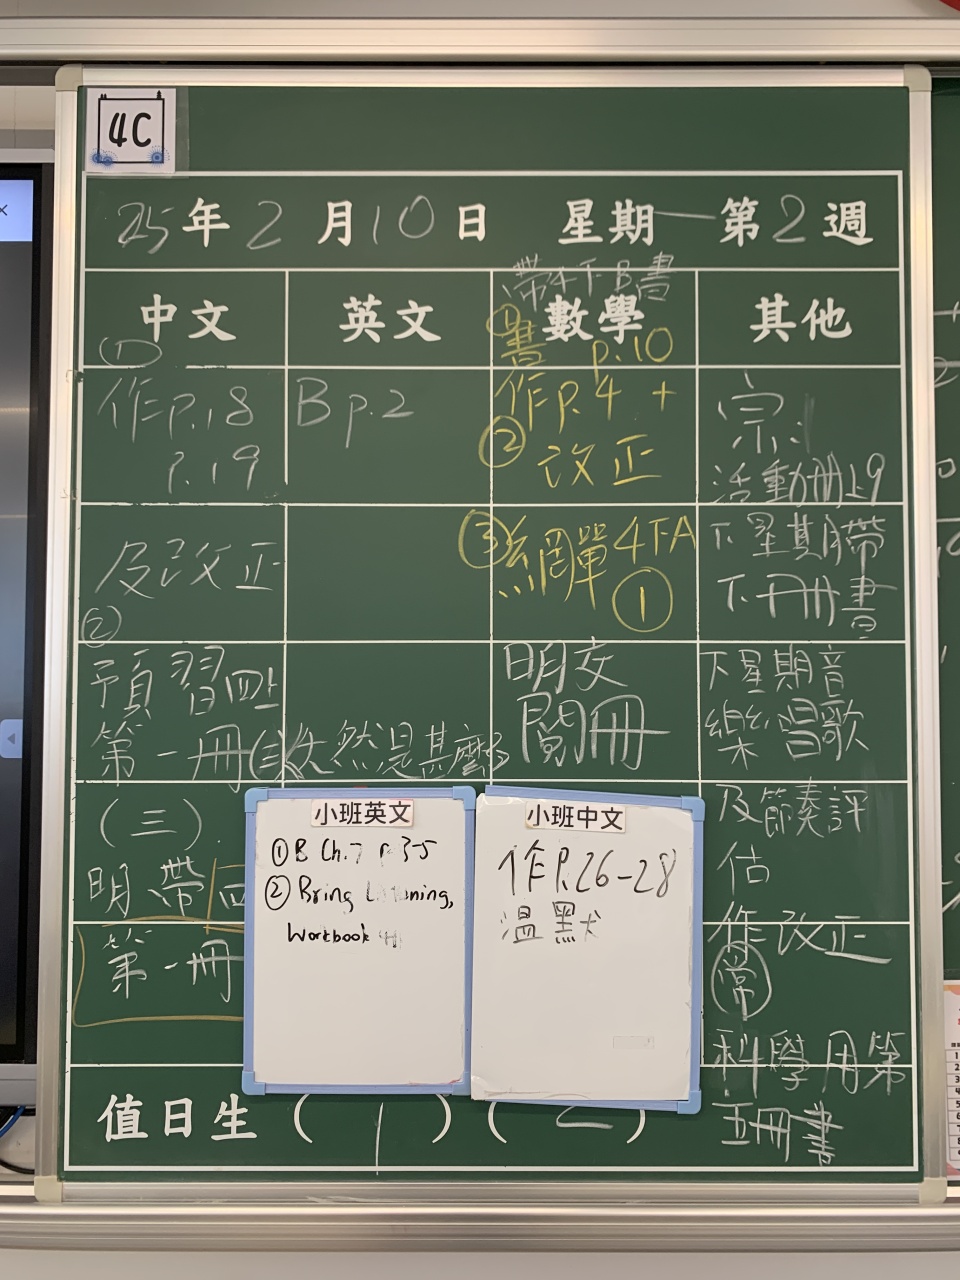 4C
25年2月10日 星期一 第2週
中文
(1)
作P.18
P.19
及改正
②
預習四上
第一冊(三)大自然是甚麼
(三)
明帶四
第一冊
英文
B p.2
帶4下B書
數學
① 書 p.10
② 作P.4 +
改正
③ 網單4下A
①
明交
閱冊
其他
宗:
活動冊L9
下星期帶
下冊書
下星期音
樂唱歌
及節奏評
估
作改正
常
科學用第
五冊書
小班英文
① B Ch.7 P.3-5
② Bring Listening,
Workbook
小班中文
作P.26-28
溫默
值日生 ( 1 ) ( 2 )